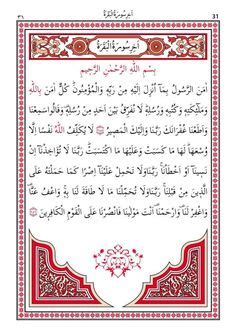 ٣١ آخر سورة البقرة 31
آخِرُ سُورَةِ الْبَقَرَةِ
بِسْمِ اللّٰهِ الرَّحْمٰنِ الرَّحِيمِ
اٰمَنَ الرَّسُولُ بِمَٓا اُنْزِلَ اِلَيْهِ مِنْ رَبِّهٖ وَالْمُؤْمِنُونَ كُلٌّ اٰمَنَ بِاللّٰهِ
وَمَلٰٓئِكَتِهٖ وَكُتُبِهٖ وَرُسُلِهٖ لَا نُفَرِّقُ بَيْنَ اَحَدٍ مِنْ رُسُلِهٖ وَقَالُوا سَمِعْنَا
وَاَطَعْنَا غُفْرَانَكَ رَبَّنَا وَاِلَيْكَ الْمَصِيرُ لَا يُكَلِّفُ اللّٰهُ نَفْسًا اِلَّا
وُسْعَهَا لَهَا مَا كَسَبَتْ وَعَلَيْهَا مَا اكْتَسَبَتْ رَبَّنَا لَا تُؤَاخِذْنَٓا اِنْ
نَسِينَٓا اَوْ اَخْطَأْنَا رَبَّنَا وَلَا تَحْمِلْ عَلَيْنَٓا اِصْرًا كَمَا حَمَلْتَهُ عَلَى
الَّذِينَ مِنْ قَبْلِنَا رَبَّنَا وَلَا تُحَمِّلْنَا مَا لَا طَاقَةَ لَنَا بِهٖ وَاعْفُ عَنَّا
وَاغْفِرْ لَنَا وَارْحَمْنَا اَنْتَ مَوْلٰينَا فَانْصُرْنَا عَلَى الْقَوْمِ الْكَافِرِينَ